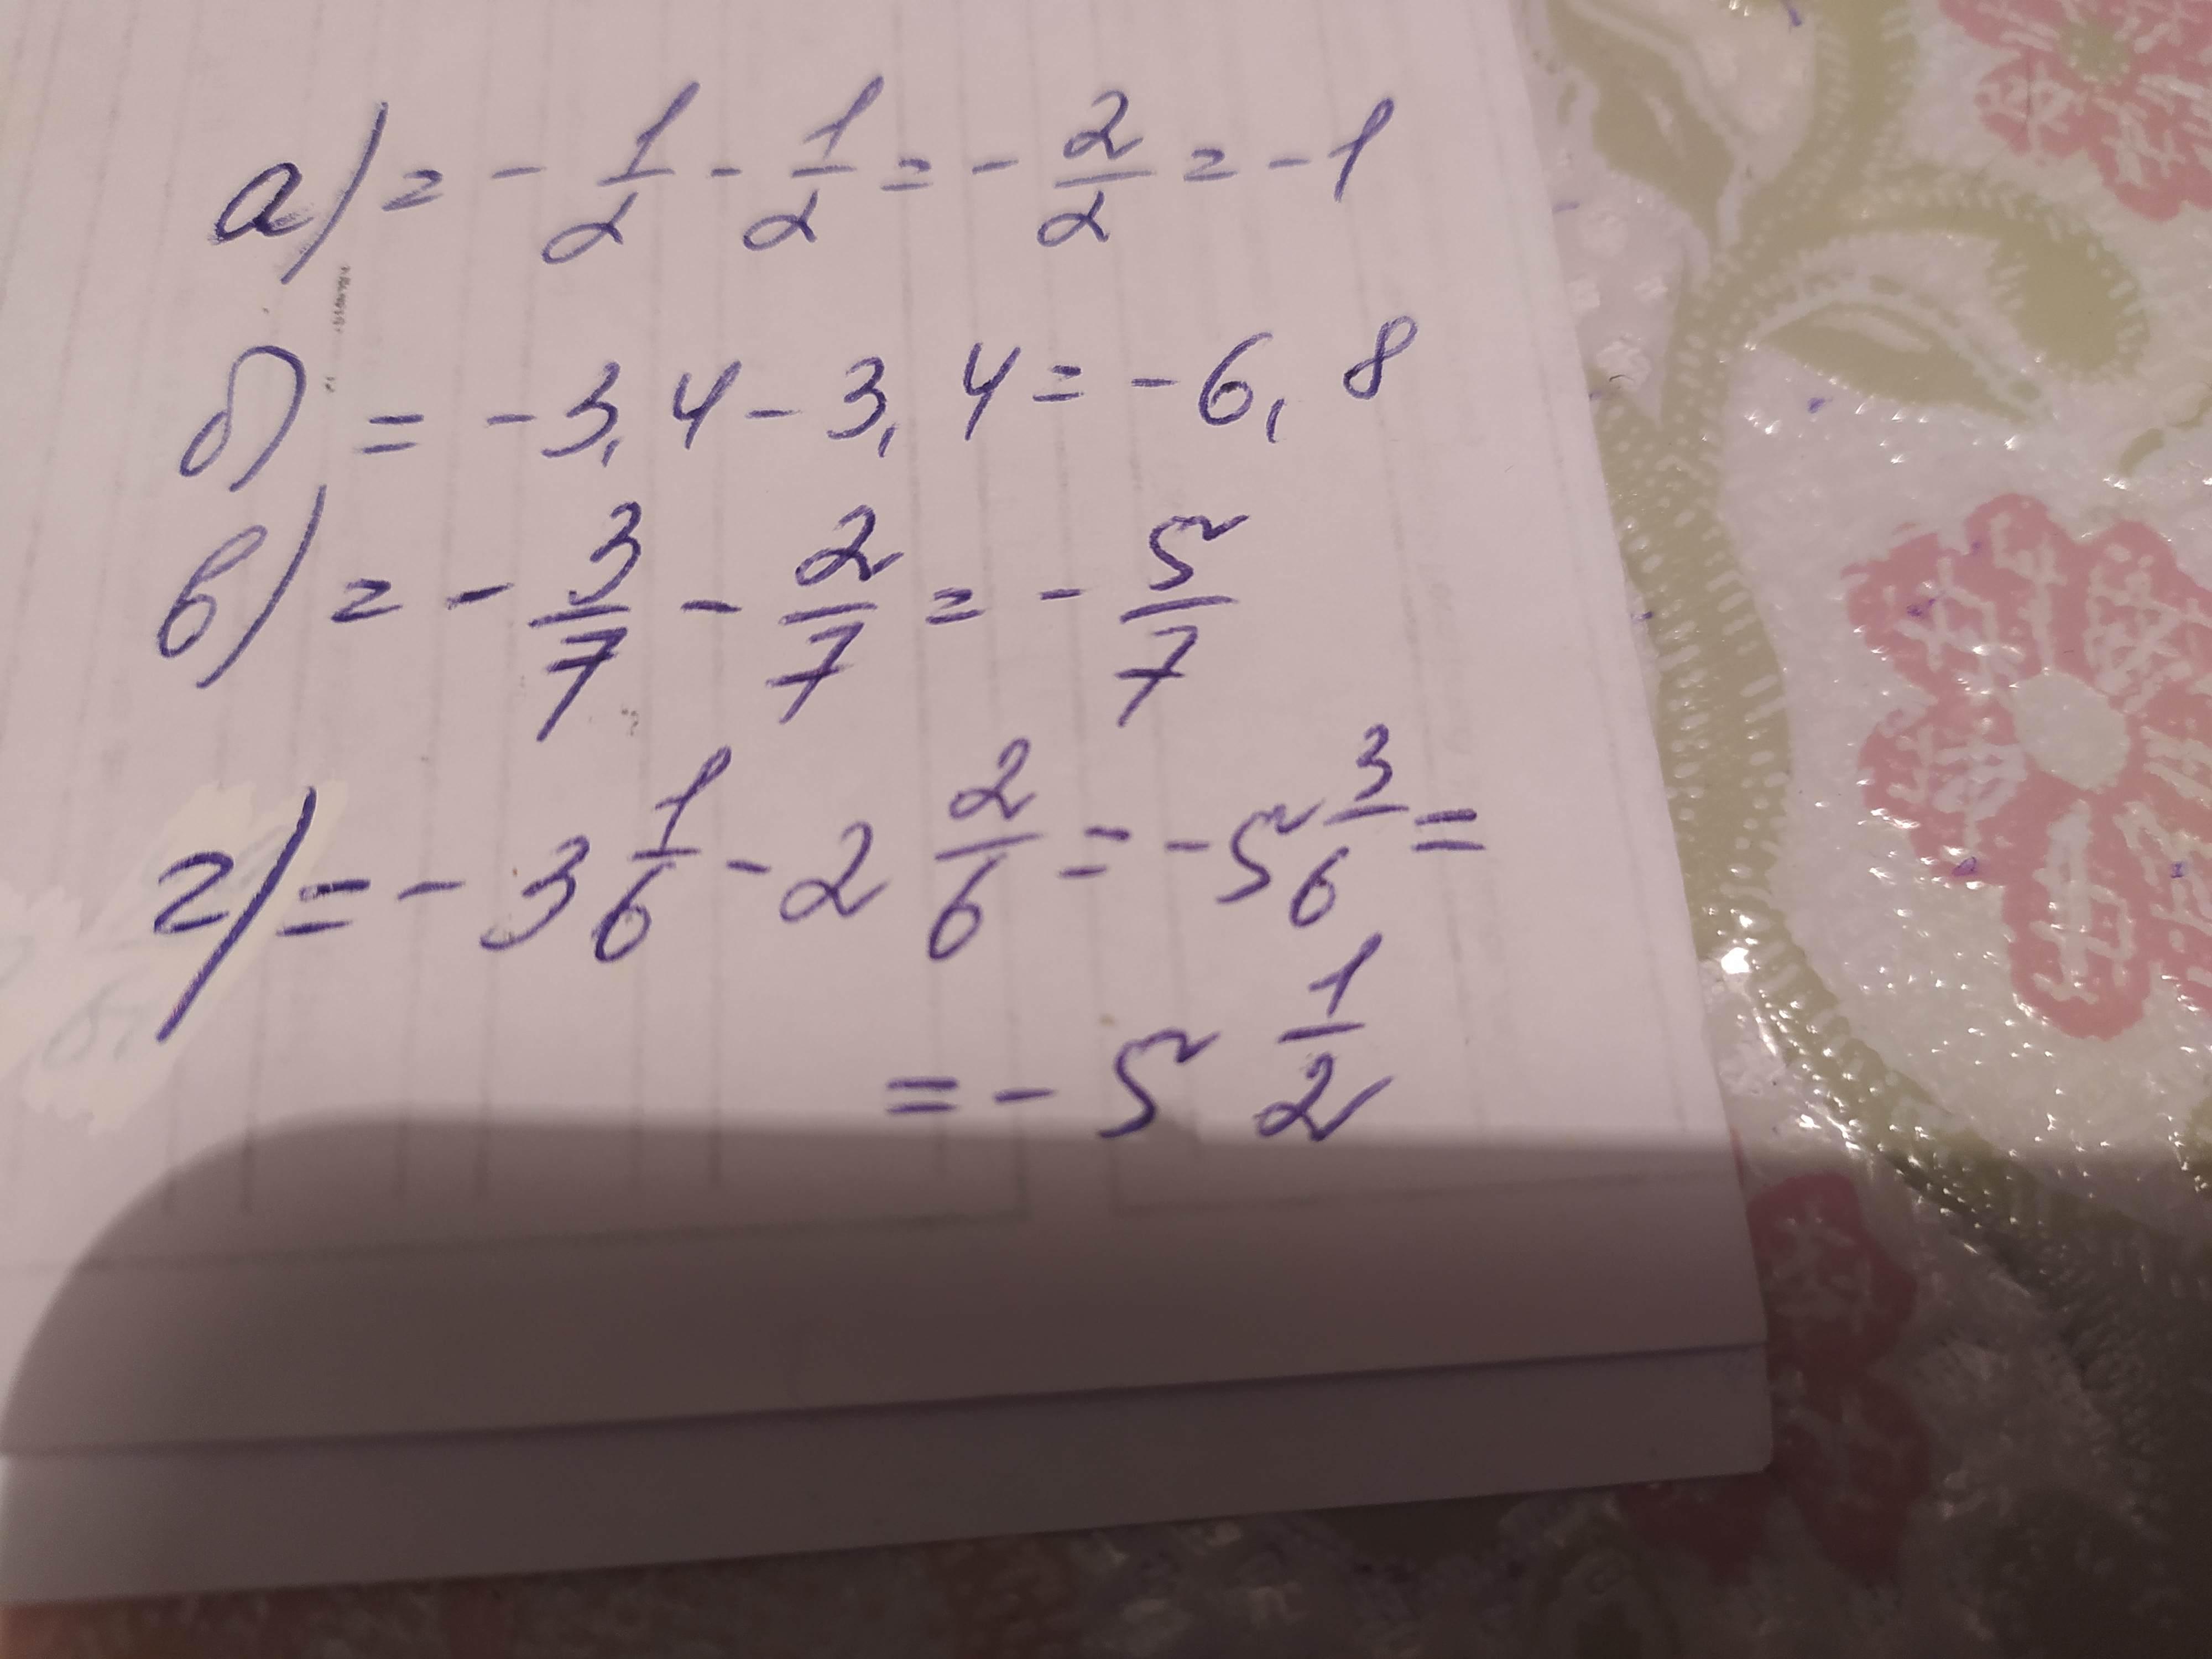 а) = - 1/2 - 1/2 = - 2/2 = - 1
б) = - 3,4 - 3,4 = - 6,8
в) = - 3/7 - 2/7 = - 5/7
г) = - 3 1/6 - 2 2/6 = - 5 3/6 =
= - 5 1/2